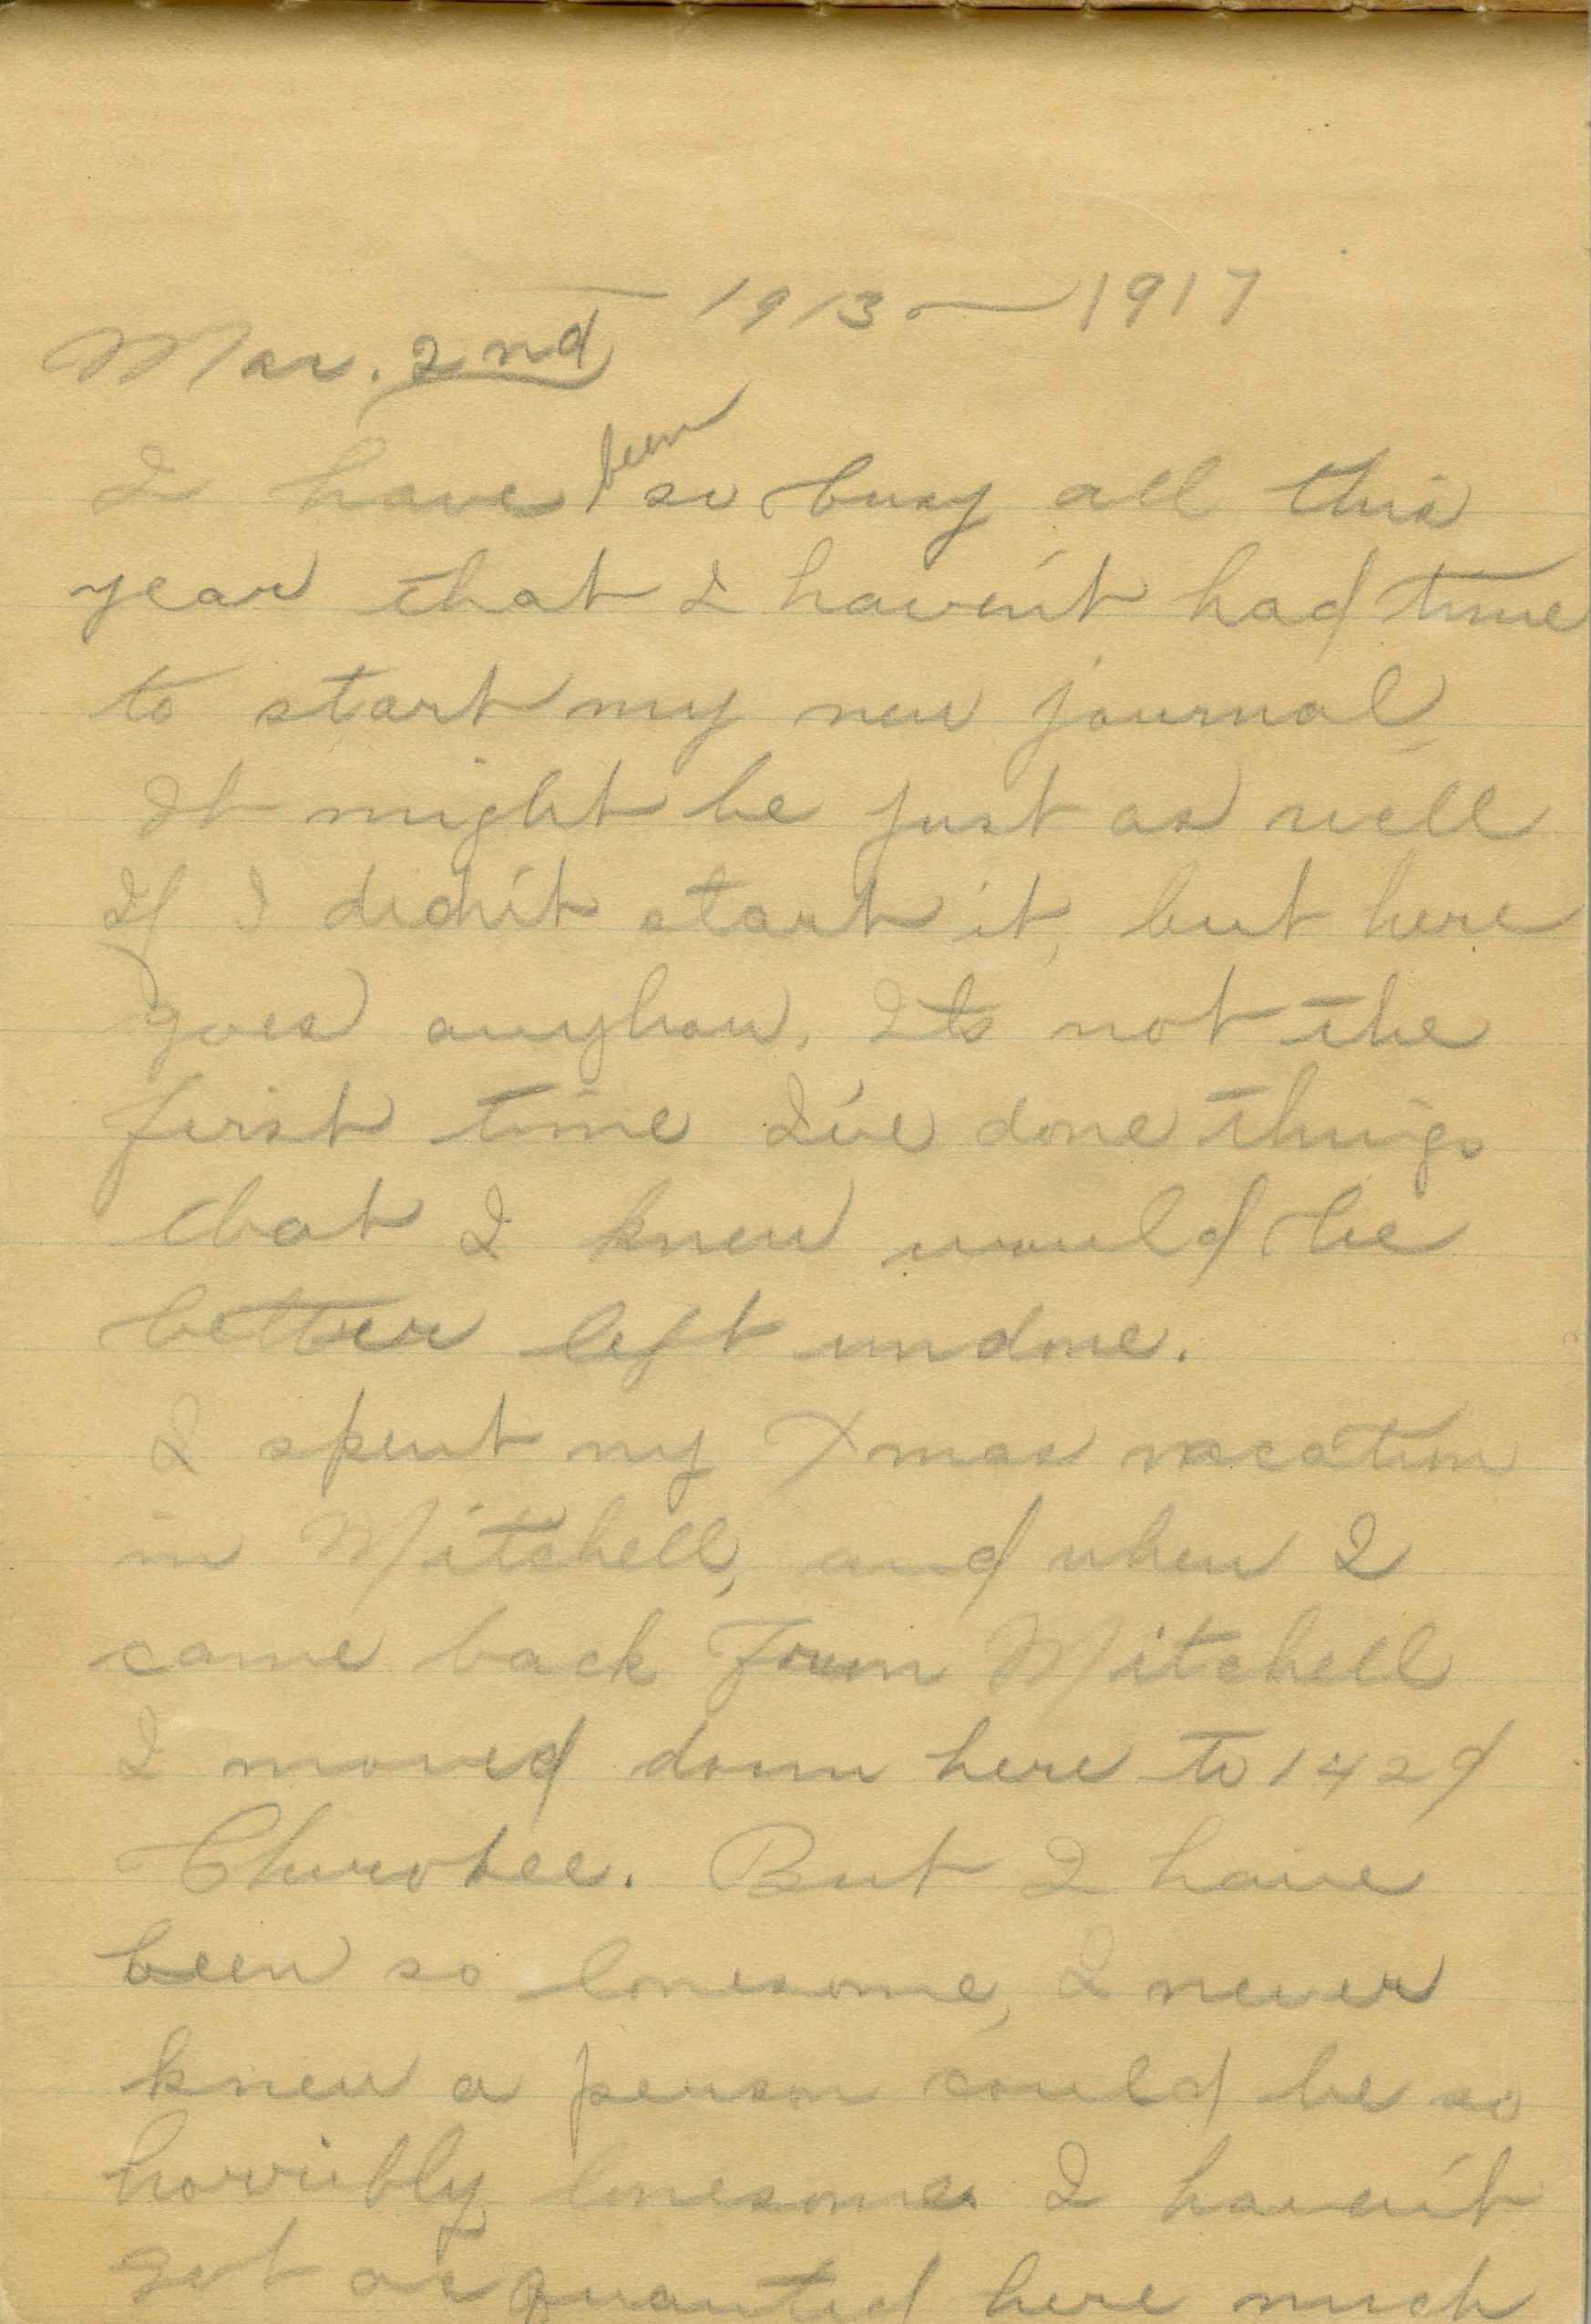 1913 — 1917
Mar. 2nd
I have been so busy all this
year that I haven't had time
to start my new journal,
It might be just as well
If I didn't start it, but here
goes anyhow. Its not the
first time I've done things
that I knew would be
better left undone.
I spent my Xmas vacation
in Mitchell, and when I
came back From Mitchell
I moved down here to 1429
Cherokee. But I have
been so lonesome, I never
knew a person could be so
horribly lonesome. I haven't
got acquanted here much